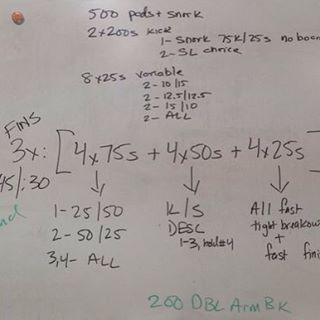 500 pads + snork
2x200s kick
1- Snork 75K/25s no boar
2- SL choice
8x25s variable
2- 10/15
2- 12.5/12.5
2- 15/10
2- ALL
FINS
3x: [4x75s + 4x50s + 4x25s]
45/:30
1-25/50
2-50/25
3,4- ALL
K/S
DESC
1-3, hold #4
All fast
tight breakou
+
fast fini
200 DBL Arm BK